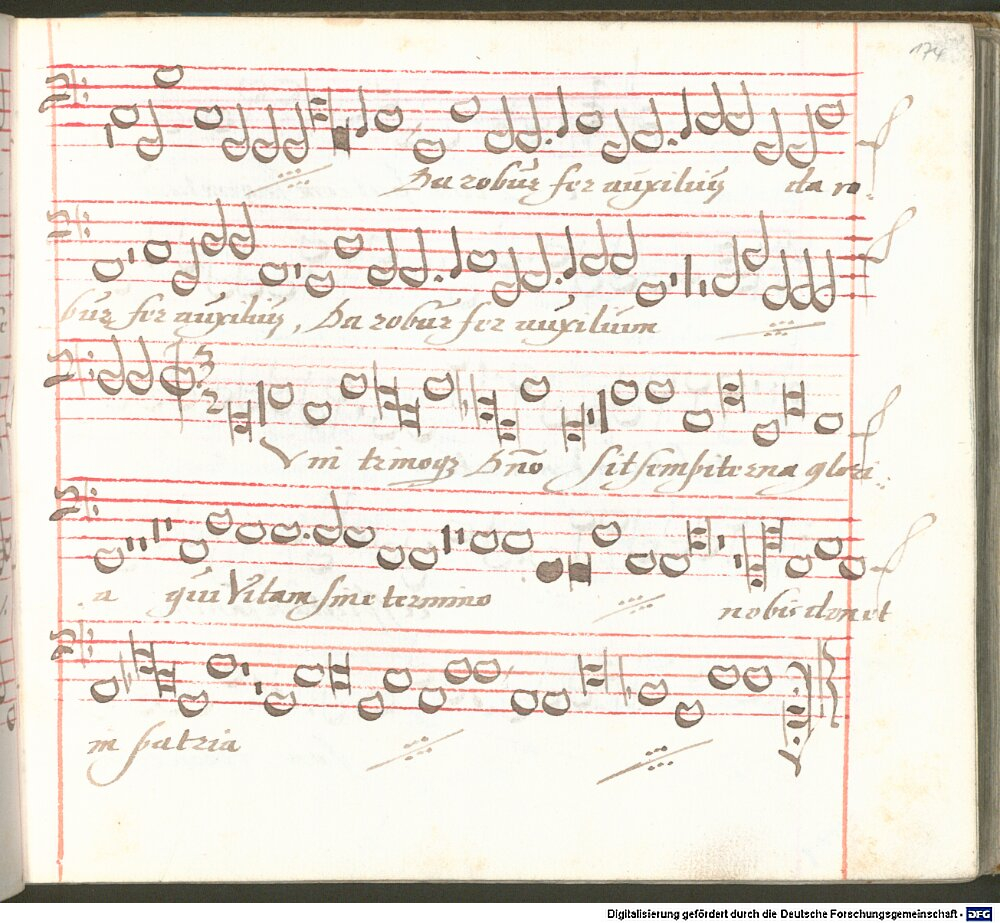 174
Da robur fer auxiliū da ro
bur fer auxiliū, Da robur fer auxilium
3
2
Vni trinoq₃ Dño sit sempiterna glori
a qui Vitam sine termino nobis donet
in patria
Digitalisierung gefördert durch die Deutsche Forschungsgemeinschaft - DFG